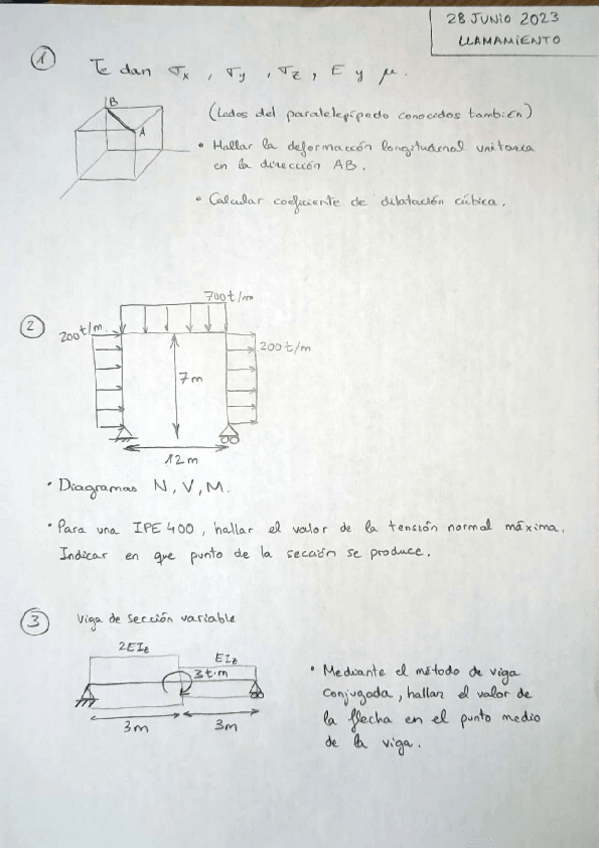 28 JUNIO 2023
LLAMAMIENTO
1 Te dan σx, σy, σz, E y μ.
B
A
(Lados del paralelepípedo conocidos también)
• Hallar la deformación longitudinal unitaria
en la dirección AB.
• Calcular coeficiente de dilatación cúbica.
2
700t/m
200t/m
200t/m
7m
12m
• Diagramas N, V, M.
• Para una IPE 400, hallar el valor de la tensión normal máxima.
Indicar en que punto de la sección se produce.
3 Viga de sección variable
2EIz
EIz
3t·m
3m
3m
• Mediante el método de viga
conjugada, hallar el valor de
la flecha en el punto medio
de la viga.